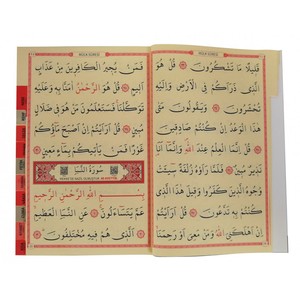 قَلِيلًا مَا تَشْكُرُونَ ۞ قُلْ هُوَ
الَّذِي ذَرَأَكُمْ فِي الْأَرْضِ وَإِلَيْهِ
تُحْشَرُونَ ۞ وَيَقُولُونَ مَتَى
هَذَا الْوَعْدُ إِنْ كُنْتُمْ صَادِقِينَ
۞ قُلْ إِنَّمَا الْعِلْمُ عِنْدَ اللَّهِ وَإِنَّمَا أَنَا نَذِيرٌ
مُبِينٌ ۞ فَلَمَّا رَأَوْهُ زُلْفَةً سِيئَتْ
وُجُوهُ الَّذِينَ كَفَرُوا وَقِيلَ هَذَا الَّذِي
كُنْتُمْ بِهِ تَدَّعُونَ ۞ قُلْ أَرَأَيْتُمْ
إِنْ أَهْلَكَنِيَ اللَّهُ وَمَنْ مَعِيَ أَوْ رَحِمَنَا
فَمَنْ يُجِيرُ الْكَافِرِينَ مِنْ عَذَابٍ
أَلِيمٍ ۞ قُلْ هُوَ الرَّحْمَنُ آمَنَّا بِهِ وَعَلَيْهِ
تَوَكَّلْنَا فَسَتَعْلَمُونَ مَنْ هُوَ فِي ضَلَالٍ
مُبِينٍ ۞ قُلْ أَرَأَيْتُمْ إِنْ أَصْبَحَ مَاؤُكُمْ
غَوْرًا فَمَنْ يَأْتِيكُمْ بِمَاءٍ مَعِينٍ ۞
سُورَةُ النَّبَإِ
بِسْمِ اللَّهِ الرَّحْمَنِ الرَّحِيمِ
عَمَّ يَتَسَاءَلُونَ ۞ عَنِ النَّبَإِ الْعَظِيمِ
۞ الَّذِي هُمْ فِيهِ مُخْتَلِفُونَ ۞